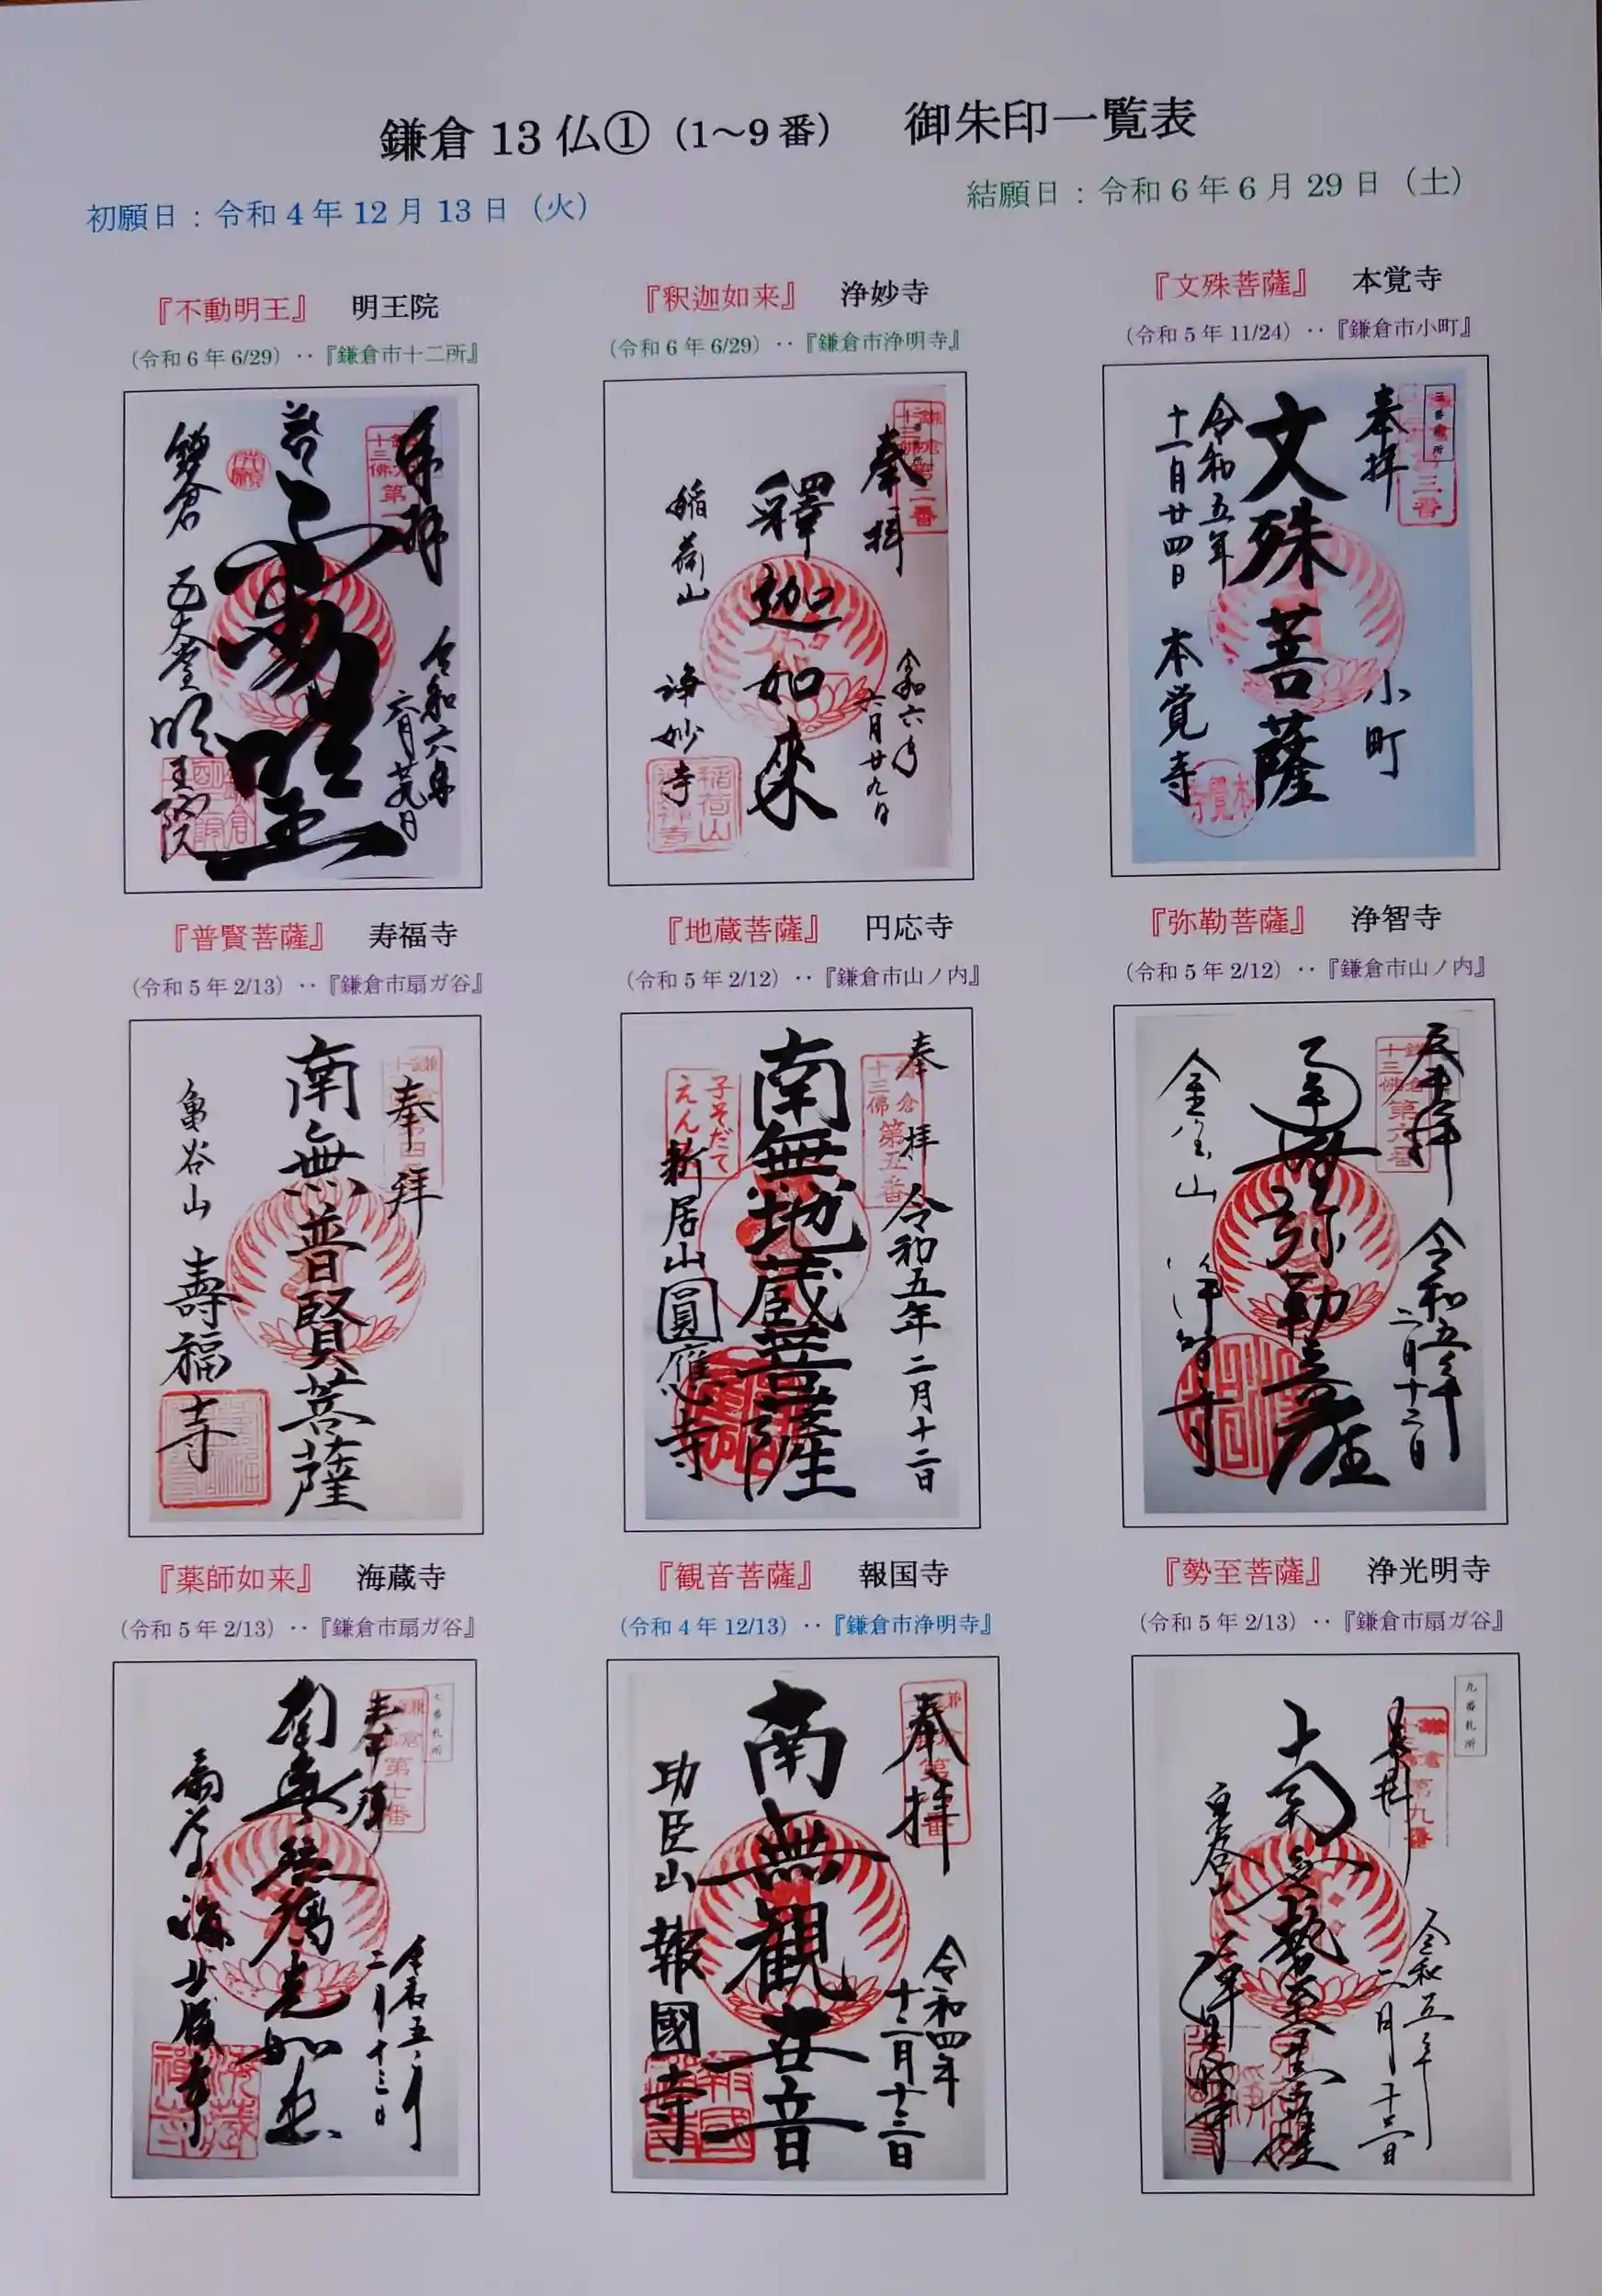 鎌倉 13 仏① (1～9 番)　御朱印一覧表
初願日：令和 4 年 12 月 13 日（火）
結願日：令和 6 年 6 月 29 日（土）
『不動明王』　明王院
(令和 6 年 6/29) ‥『鎌倉市十二所』
『釈迦如来』　浄妙寺
(令和 6 年 6/29) ‥『鎌倉市浄明寺』
『文殊菩薩』　本覚寺
(令和 5 年 11/24) ‥『鎌倉市小町』
奉拝
令和六年
六月廿九日
鎌倉
五大堂
明王院
奉拝
令和六年
六月廿九日
釋迦如来
稲荷山
浄妙寺
三番札所
奉拝
小町
文殊菩薩
令和五年
十一月廿四日
本覚寺
『普賢菩薩』　寿福寺
(令和 5 年 2/13) ‥『鎌倉市扇ガ谷』
『地蔵菩薩』　円応寺
(令和 5 年 2/12) ‥『鎌倉市山ノ内』
『弥勒菩薩』　浄智寺
(令和 5 年 2/12) ‥『鎌倉市山ノ内』
奉拝
南無普賢菩薩
亀谷山
壽福寺
奉拝
令和五年二月十二日
十三佛
第五番
南無地蔵菩薩
子そだて
えん
新居山
圓應寺
奉拝
令和五年
二月十二日
第六番
南無弥勒菩薩
金宝山
浄智寺
『薬師如来』　海蔵寺
(令和 5 年 2/13) ‥『鎌倉市扇ガ谷』
『観音菩薩』　報国寺
(令和 4 年 12/13) ‥『鎌倉市浄明寺』
『勢至菩薩』　浄光明寺
(令和 5 年 2/13) ‥『鎌倉市扇ガ谷』
七番札所
奉拝
第七番
令和五年
二月十三日
扇谷山
海蔵寺
奉拝
令和四年
十二月十三日
南無観世音
功臣山
報國寺
九番札所
第九番
令和五年
二月十三日
南無勢至菩薩